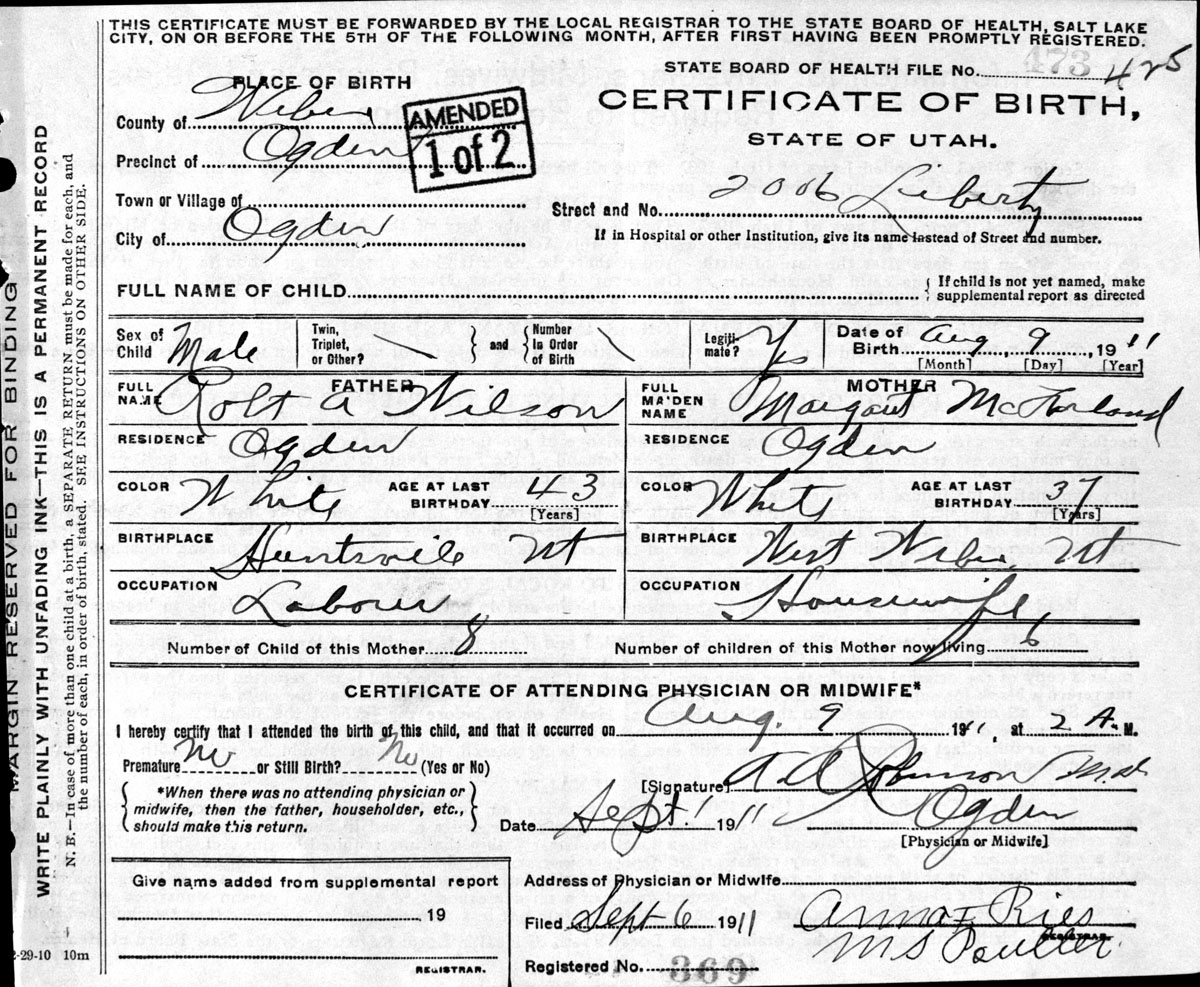 THIS CERTIFICATE MUST BE FORWARDED BY THE LOCAL REGISTRAR TO THE STATE BOARD OF HEALTH, SALT LAKE
CITY, ON OR BEFORE THE 5TH OF THE FOLLOWING MONTH, AFTER FIRST HAVING BEEN PROMPTLY REGISTERED.
STATE BOARD OF HEALTH FILE No. 473 425
PLACE OF BIRTH
CERTIFICATE OF BIRTH,
STATE OF UTAH.
County of Weber
AMENDED
1 of 2
Precinct of Ogden
Town or Village of
Street and No. 2006 Liberty
City of Ogden
If in Hospital or other Institution, give its name instead of Street and number.
FULL NAME OF CHILD
If child is not yet named, make
supplemental report as directed
Sex of Child Male
Twin, Triplet, or Other? and Number In Order of Birth
Legiti-mate? Yes
Date of Birth Aug 9, 1911
[Month] [Day] [Year]
FATHER
FULL NAME Robt A Wilson
MOTHER
FULL MAIDEN NAME Margaret McFarland
RESIDENCE Ogden
RESIDENCE Ogden
COLOR White AGE AT LAST BIRTHDAY 43 [Years]
COLOR White AGE AT LAST BIRTHDAY 37 [Years]
BIRTHPLACE Huntsville Ut
BIRTHPLACE West Weber, Ut
OCCUPATION Labourer
OCCUPATION Housewife
Number of Child of this Mother 8
Number of children of this Mother now living 6
CERTIFICATE OF ATTENDING PHYSICIAN OR MIDWIFE*
I hereby certify that I attended the birth of this child, and that it occurred on Aug. 9 1911, at 2 A. M.
Premature No or Still Birth? No (Yes or No)
*When there was no attending physician or
midwife, then the father, householder, etc.,
should make this return.
[Signature] Robinson M.D.
Date Sept 1 1911
Ogden
[Physician or Midwife]
Give name added from supplemental report
19
REGISTRAR.
Address of Physician or Midwife
Filed Sept 6 1911
Anna F. Ries
M S Poulter
REGISTRAR.
Registered No. 369
MARGIN RESERVED FOR BINDING
WRITE PLAINLY WITH UNFADING INK—THIS IS A PERMANENT RECORD
N. B.—In case of more than one child at a birth, a SEPARATE RETURN must be made for each, and
the number of each, in order of birth, stated. SEE INSTRUCTIONS ON OTHER SIDE.
2-29-10 10m